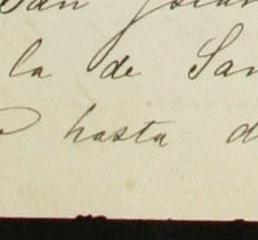 San
la de San
hasta d